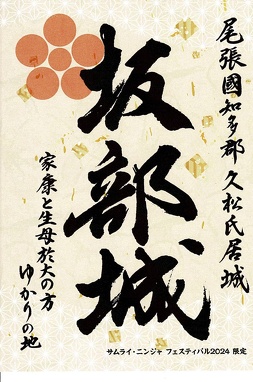 尾張國知多郡久松氏居城
坂部城
家康と生母於大の方
ゆかりの地
サムライ・ニンジャ フェスティバル2024 限定